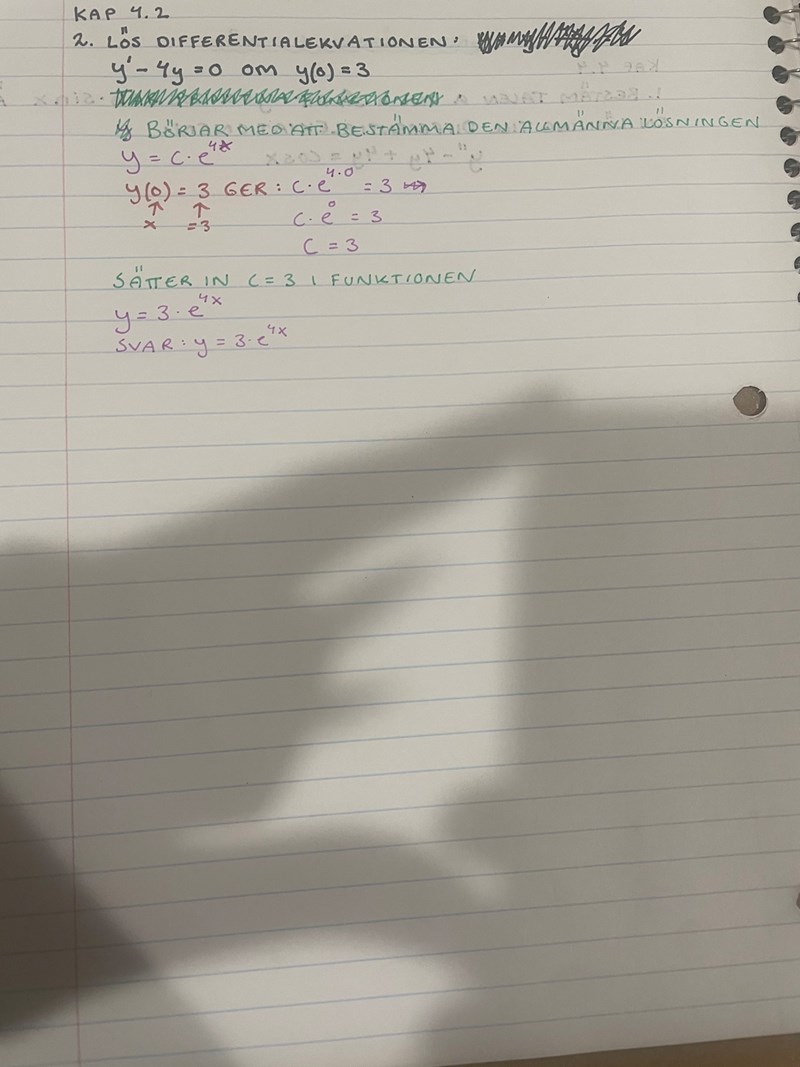 KAP 4.2
2. LÖS DIFFERENTIALEKVATIONEN:
y' - 4y = 0 om y(0) = 3
BÖRJAR MED ATT BESTÄMMA DEN ALLMÄNNA LÖSNINGEN
y = C · e^4x
y(0) = 3 GER: C · e^4·0 = 3
↑ ↑ C · e^0 = 3
x =3
C = 3
SÄTTER IN C = 3 I FUNKTIONEN
y = 3 · e^4x
SVAR: y = 3 · e^4x